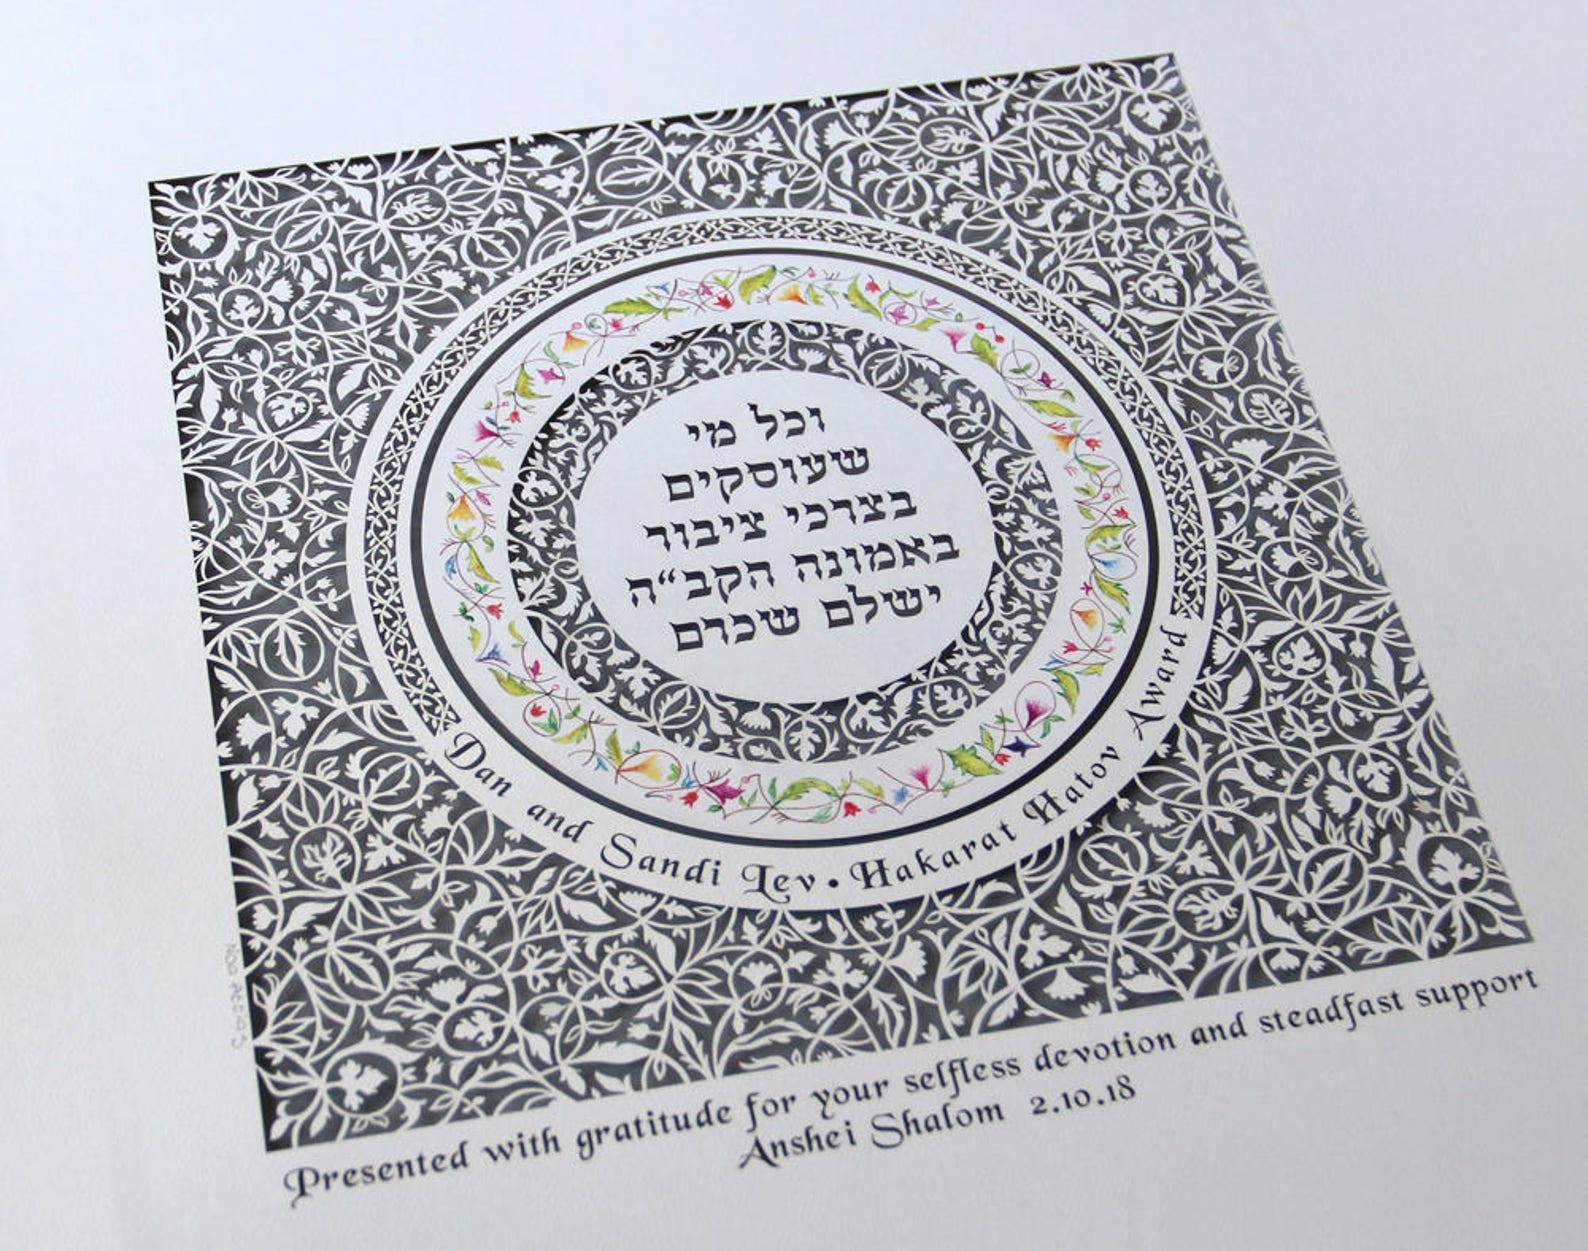 וכל מי
שעוסקים
בצרכי ציבור
באמונה הקב״ה
ישלם שכרם
Dan and Sandi Lev • Hakarat Hatov Award
Presented with gratitude for your selfless devotion and steadfast support
Anshei Shalom 2.10.18